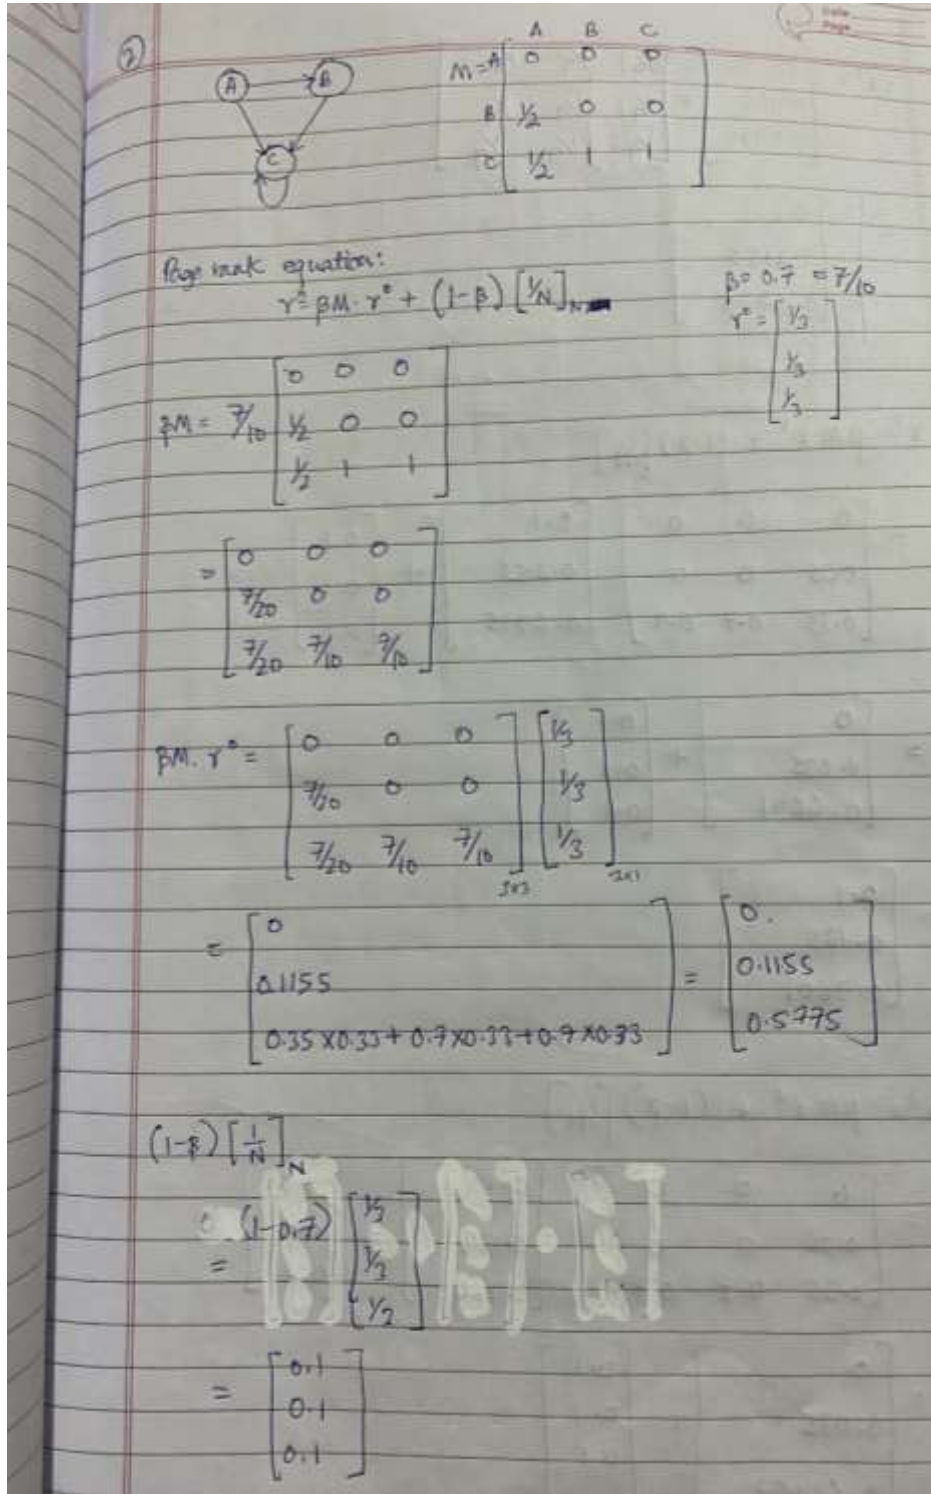 2)
A B C
A B C
M = A 0 0 0
B 1/2 0 0
C 1/2 1 1
Page rank equation:
r² = βM · r° + (1-β) [1/N]N
β = 0.7 = 7/10
r° = [1/3
1/3
1/3]
βM = 7/10 [0 0 0
1/2 0 0
1/2 1 1]
= [0 0 0
7/20 0 0
7/20 7/10 7/10]
βM. r° = [0 0 0
7/20 0 0
7/20 7/10 7/10]3x3 [1/3
1/3
1/3]3x1
= [0
0.1155
0.35 x0.33 + 0.7x0.33 + 0.7 x0.33] = [0.
0.1155
0.5775]
(1-β) [1/N]N
= (1-0.7) [1/3
1/3
1/2]
= [0.1
0.1
0.1]